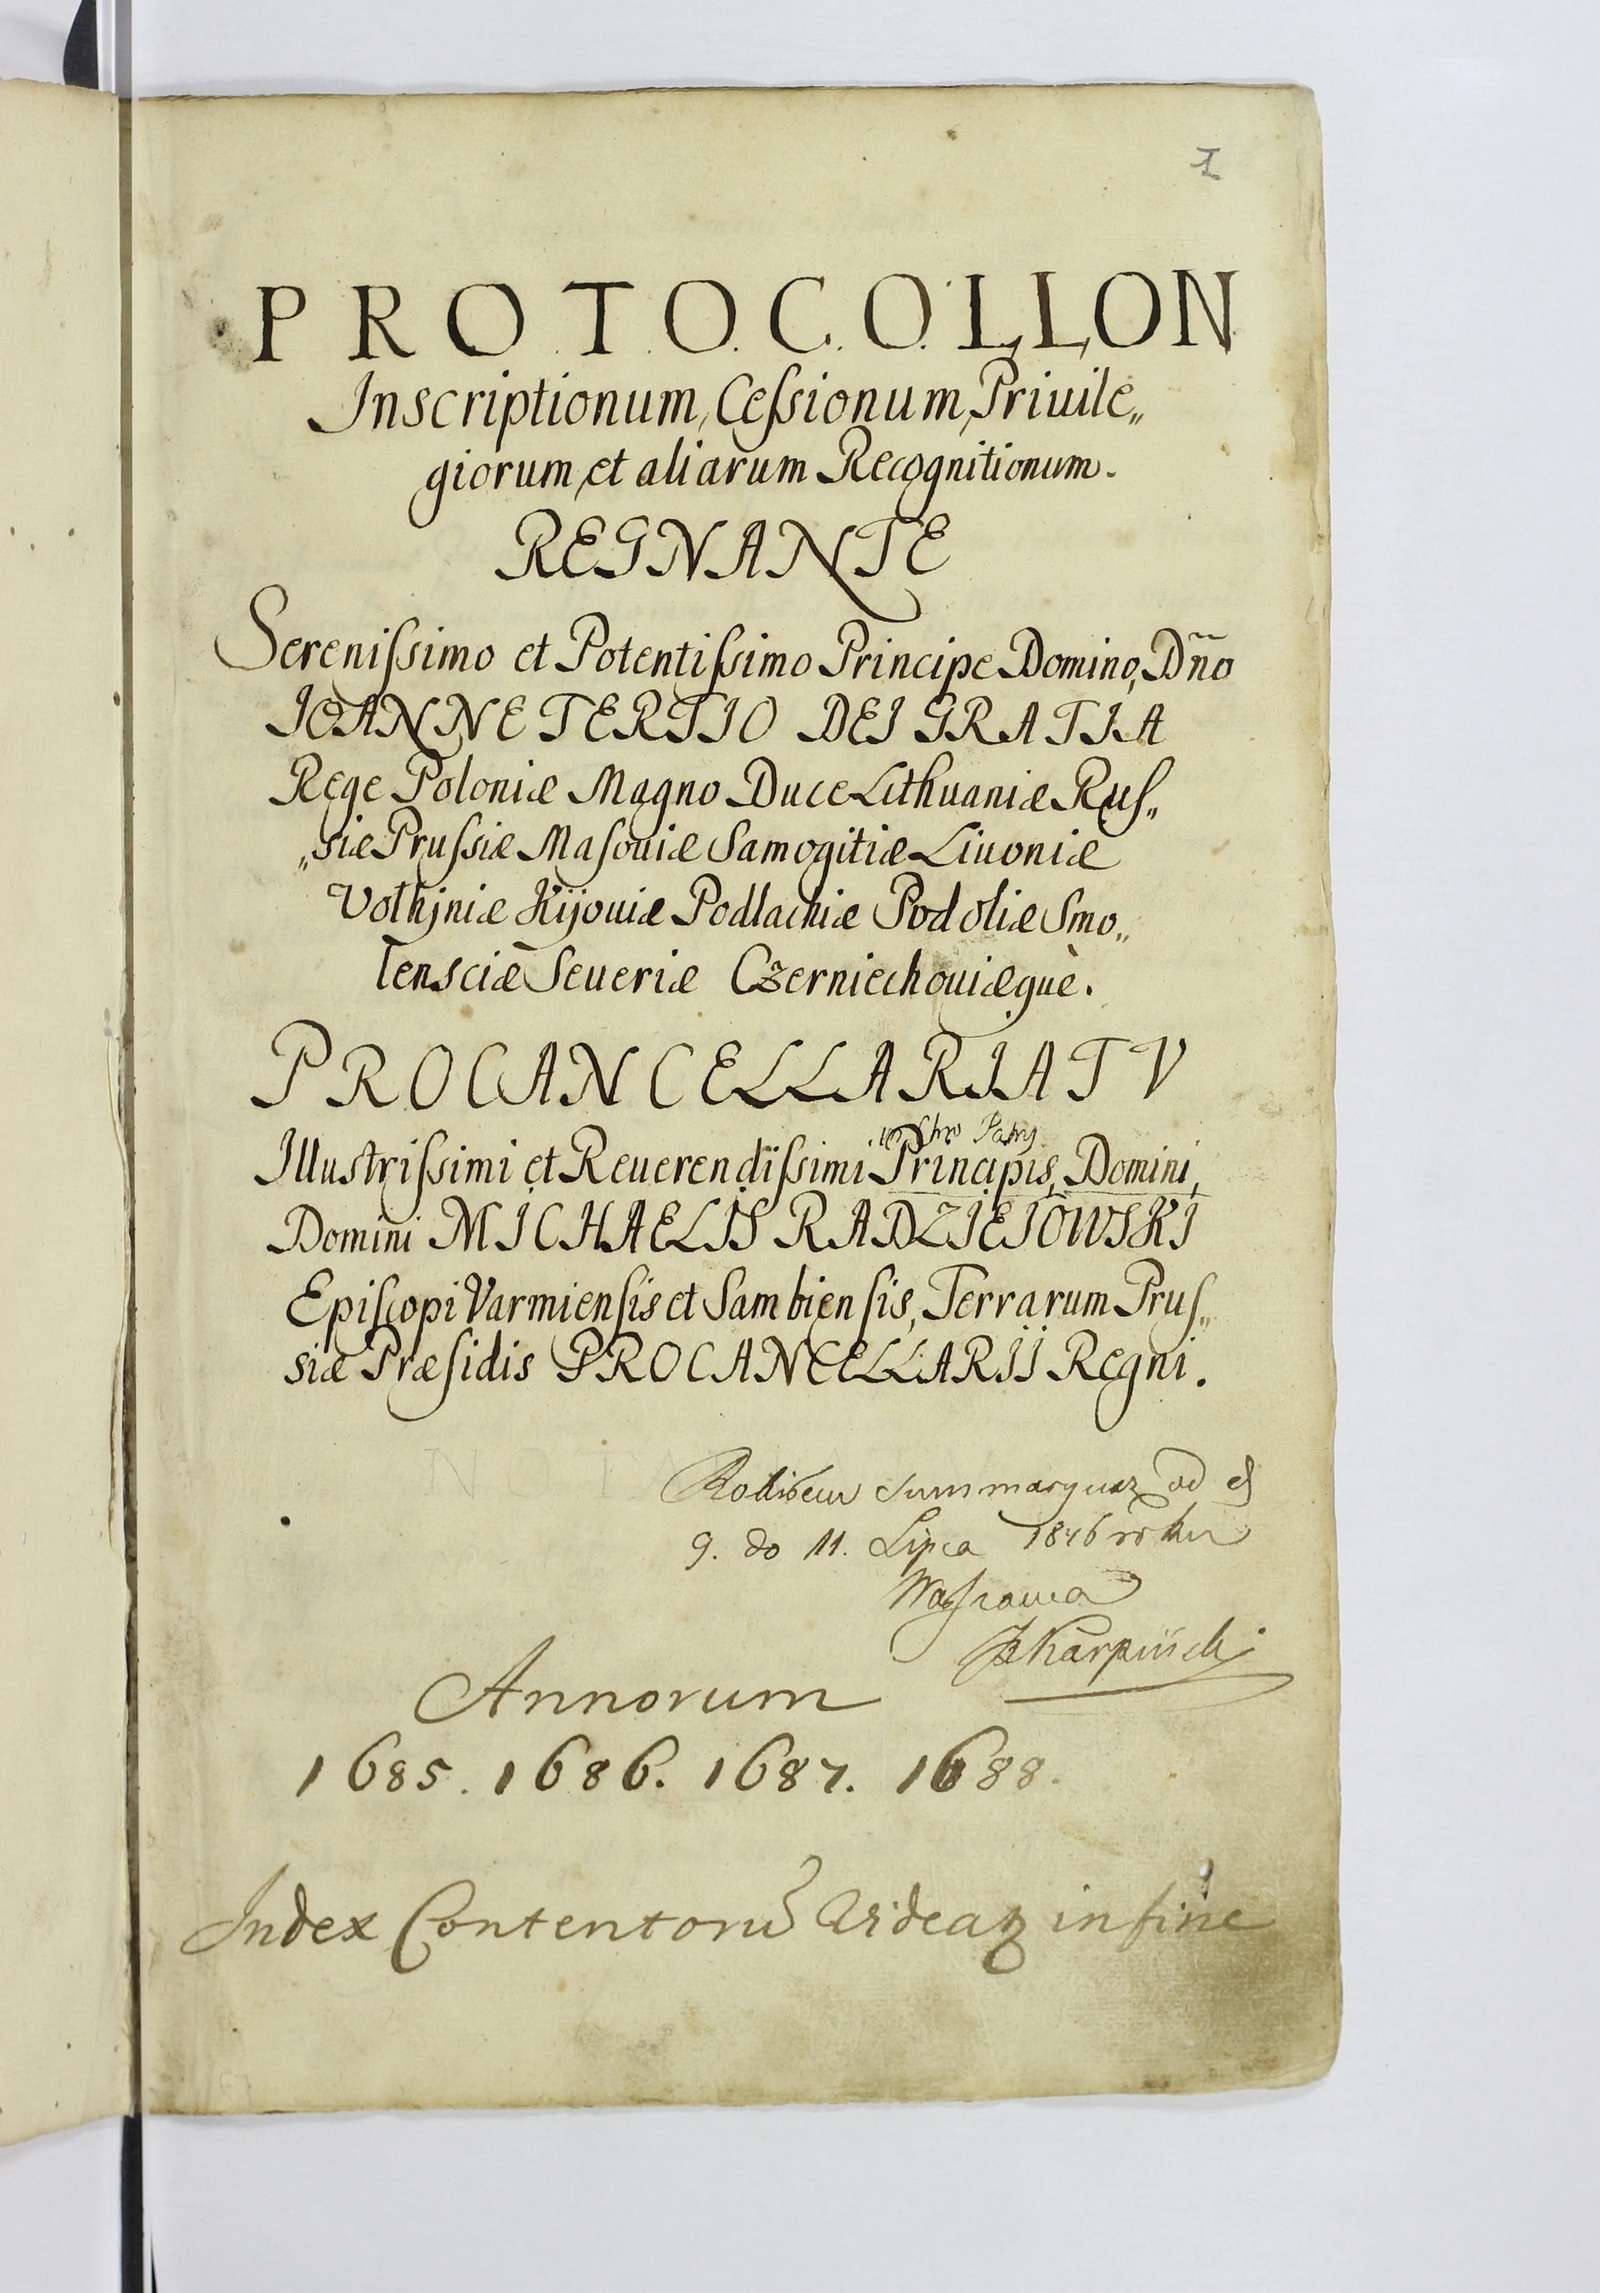 1
PROTOCOLLON
Inscriptionum, Ceſsionum, Priuile„
giorum, et aliarum Recognitionum.
REGNANTE
Sereniſsimo et Potentiſsimo Principe Domino, Dño
IOANNE TERTIO DEI GRATIA
Rege Poloniæ Magno Duce Lithuaniæ Ruſ„
„siæ Pruſsiæ Maſouiæ Samogitiæ Liuoniæ
Volhjniæ Kijouiæ Podlachiæ Podoliæ Smo„
lensciæ Seueriæ Czerniechouiæquè.
PROCANCELLARIATV
in Chro Patris
Illustriſsimi et Reuerendiſsimi Principis, Domini,
Domini MICHAELIS RADZIEIOWSKI
Epiſcopi Varmienſis et Sambienſis, Terrarum Pruſ„
siæ Præſidis PROCANCELLARII Regni.
Robiłem Summaryusz od
9. do 11. Lipca 1846 roku
Warſzawa
Karpiński
Annorum
1685. 1686. 1687. 1688.
Index Contentorū Videatꝫ in fine